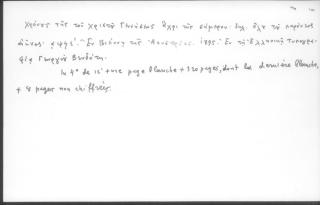 χρόνους τῆς τοῦ χριστοῦ Γεννήσεως ἄχρι τοῦ σήμερον. δηλ. ὅλου τοῦ παρόντος
αἰῶνος αψϟε΄. Ἐν Βιέννῃ τῆς Ἀουστρίας. 1795. Ἐν τῇ Ἑλληνικῇ Τυπογρα-
φίᾳ Γεωργίου Βενδότη.
In 4° de 12 + une page blanche + 320 pages, dont la dernière blanche,
+ 8 pages non chiffrées.